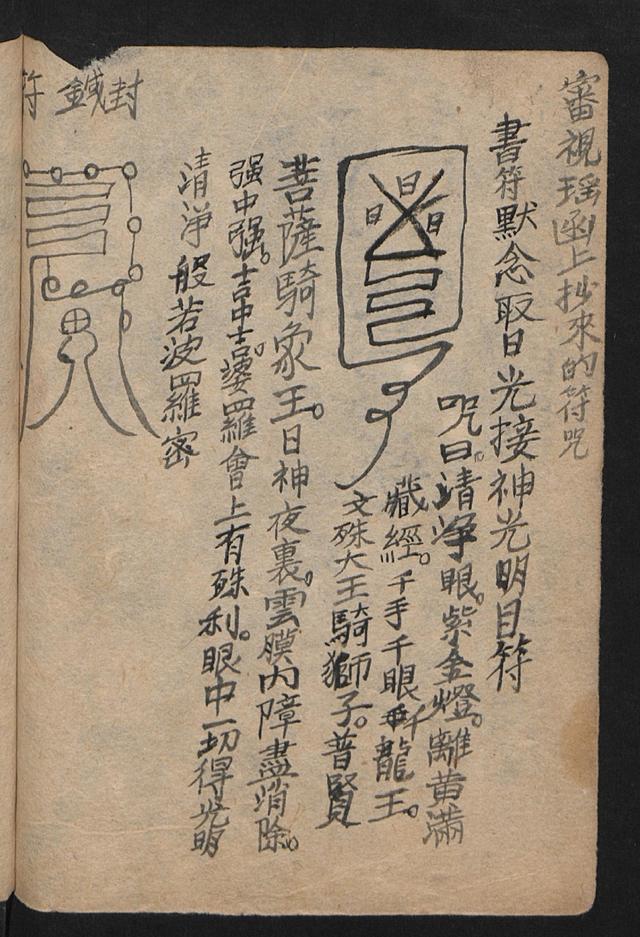 審視瑤函上抄來的符咒
書符默念取日光接神光明目符
咒曰。清净眼。紫金燈。離黄满
藏經。千手千眼千龍王。
文殊大王騎獅子。普賢
菩薩騎象王。日神夜裏。雲膜内障盡消除。
强中强。吉中吉。婆羅會上有殊利。眼中一切得光明
清淨般若波羅密
封鍼符
日
日
日